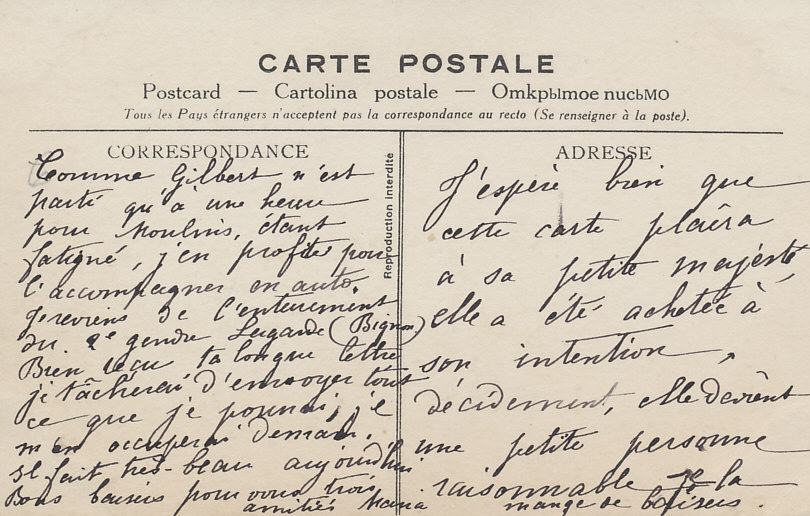 CARTE POSTALE
Postcard — Cartolina postale — Omkpыmoe nucьMO
Tous les Pays étrangers n'acceptent pas la correspondance au recto (Se renseigner à la poste).
CORRESPONDANCE
Comme Gilbert n'est
parti qu'à une heure
pour Moulins, étant
fatigué, j'en profite pour
l'accompagner en auto.
Je reviens de l'enterrement
du gendre Lagarde (Bignon)
Bien reçu ta longue lettre
je tâcherai d'envoyer tout
ce que je pourrai, je
m'en occuperai demain.
Il fait très-beau aujourd'hui
Bons baisers pour vous trois
amitiés Maria
Reproduction interdite
ADRESSE
J'espère bien que
cette carte plaira
à sa petite majesté,
elle a été achetée à
son intention,
décidement, elle devient
une petite personne
raisonnable je la
mange de baisers.